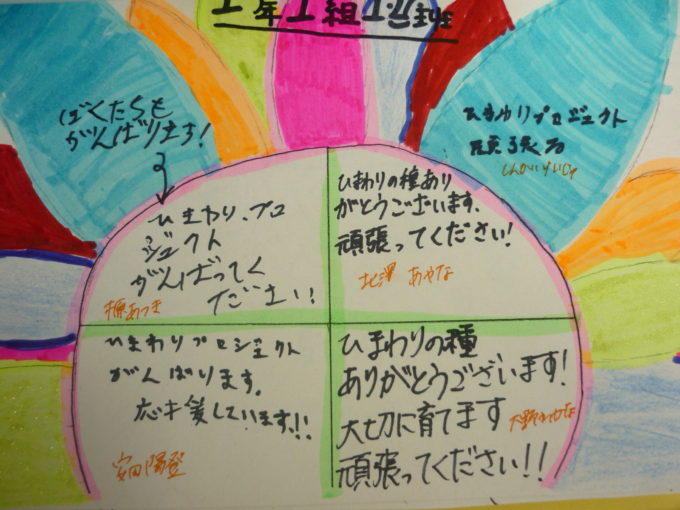 1年1組1.2班
ぼくたちも
がんばります!
ひまわりプロジェクト
頑張る
ひまわり、プロ
ジェクト
がんばってく
ださい!
ひまわりの種あり
がとうございます、
頑張ってください!
北澤 あやな
ひまわりプロジェクト
がんばります。
応援しています!!
安田陽登
ひまわりの種
ありがとうございます!
大切に育てます
頑張ってください!!